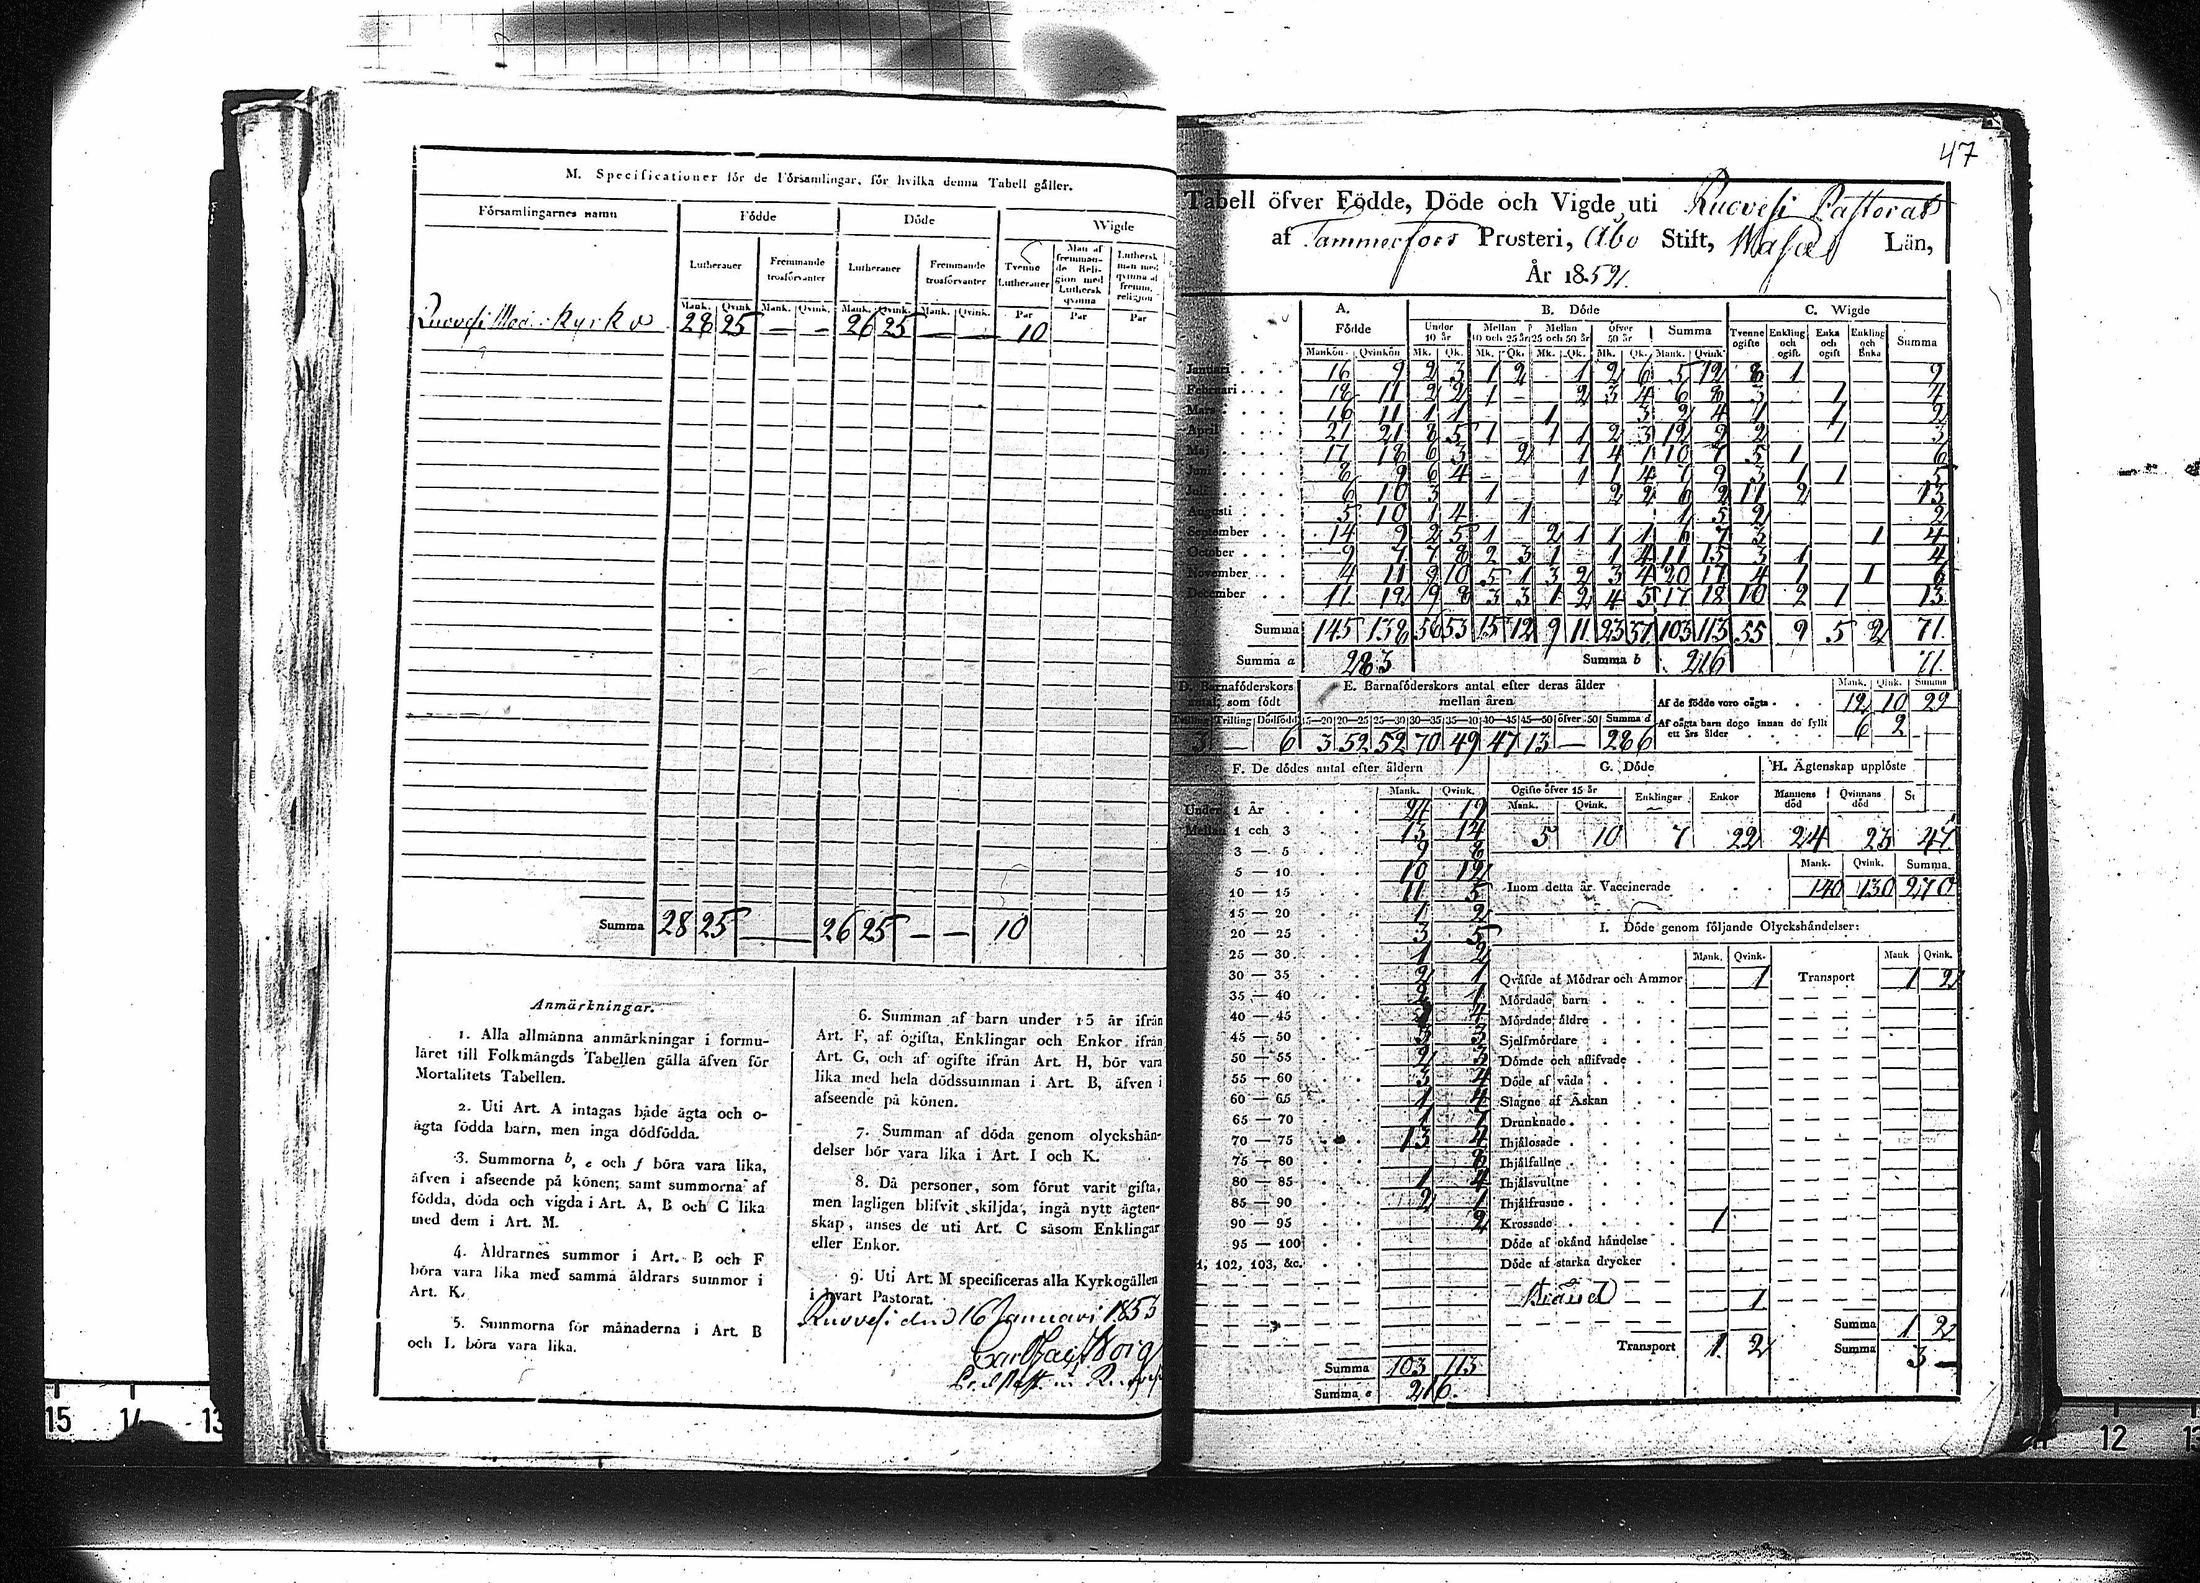 M. Specificationer för de Församlingar, för hvilka denna Tabell gäller.
Församlingarnes namn
Födde
Döde
Wigde
Lutheraner
Fremmande trosförvanter
Lutheraner
Fremmande trosförvanter
Tvenne Lutheraner
Man af fremmande Religion med Luthersk qvinna
Luthersk man med qvinna af fremm. religion
Mank. Qvink. Mank. Qvink. Mank. Qvink. Mank. Qvink. Par Par Par
28 25 — — 26 25 — — 10
Summa 28 25 — 26 25 — — 10
Anmärkningar.
1. Alla allmänna anmärkningar i formu-
läret till Folkmängds Tabellen gälla äfven för
Mortalitets Tabellen.
2. Uti Art. A intagas både ägta och o-
ägta födda barn, men inga dödfödda.
3. Summorna b, e och f böra vara lika,
äfven i afseende på könen; samt summorna af
födda, döda och vigda i Art. A, B och C lika
med dem i Art. M.
4. Åldrarnes summor i Art. B och F
böra vara lika med samma åldrars summor i
Art. K.
5. Summorna för månaderna i Art. B
och L böra vara lika.
6. Summan af barn under 15 år ifrån
Art. F, af ogifta, Enklingar och Enkor ifrån
Art. G, och af ogifte ifrån Art. H, bör vara
lika med hela dödssumman i Art. B, äfven i
afseende på könen.
7. Summan af döda genom olyckshän-
delser bör vara lika i Art. I och K.
8. Då personer, som förut varit gifta,
men lagligen blifvit skiljda, ingå nytt ägten-
skap, anses de uti Art. C såsom Enklingar
eller Enkor.
9. Uti Art. M specificeras alla Kyrkogällen
i hvart Pastorat.
Ruovesi den 16 Januari 1853
47
Tabell öfver Födde, Döde och Vigde uti Ruovesi Pastorat
af Tammerfors Prosteri, Åbo Stift, Wasa Län,
År 18
A. Födde
B. Döde
C. Wigde
Under 10 år
Mellan 10 och 25 år
Mellan 25 och 50 år
öfver 50 år
Summa
Tvenne ogifte
Enkling och ogift
Enka och ogift
Enkling och Enka
Summa
Mankön Qvinkön Mk. Qk. Mk. Qk. Mk. Qk. Mk. Qk. Mank. Qvink.
Januari 16 9 2 3 1 2 1 2 6 5 12 8 1 9
Februari 18 11 2 2 1 — 2 3 4 6 8 3 1 4
Mars 16 11 1 1 1 3 2 4 1 1 2
April 21 21 8 5 1 — 1 1 2 3 12 9 2 1 3
Maj 17 18 6 3 — 2 1 4 1 10 7 5 1 6
Juni 8 9 6 4 1 1 4 7 9 3 1 1 5
Juli 6 10 3 1 2 2 6 2 11 2 13
Augusti 5 10 1 4 1 1 5 2 2
September 14 9 2 5 1 2 1 1 1 6 7 3 1 4
October 9 7 7 8 2 3 1 1 4 11 15 3 1 4
November 4 11 9 10 5 1 3 2 3 4 20 17 4 1 1 6
December 11 12 9 8 3 3 1 2 4 5 17 18 10 2 1 13
Summa 145 138 56 53 15 12 9 11 23 37 103 113 55 9 5 2 71
Summa a 283 Summa b 216 71
D. Barnaföderskors antal, som födt
E. Barnaföderskors antal efter deras ålder mellan åren
Tvilling Trilling Dödfödd 15—20 20—25 25—30 30—35 35—40 40—45 45—50 öfver 50 Summa d
3 — 6 3 52 52 70 49 47 13 — 286
Mank. Qvink. Summa
Af de födde voro oägta 12 10 22
Af oägta barn dogo innan de fyllt ett års ålder 6 2
F. De dödes antal efter åldern
Mank. Qvink.
Under 1 År 24 19
Mellan 1 och 3 13 14
3 — 5 9 8
5 — 10 10 12
10 — 15 11 5
15 — 20 1 2
20 — 25 3 5
25 — 30 1 2
30 — 35 2 1
35 — 40
40 — 45
45 — 50 3 3
50 — 55 2 3
55 — 60 3 4
60 — 65 1 4
65 — 70 1
70 — 75 13 4
75 — 80 8
80 — 85 1 4
85 — 90 2 1
90 — 95 2
95 — 100
102, 103, &c.
Summa 103 113
Summa e 216.
G. Döde
Ogifte öfver 15 år
Mank. Qvink. Enklingar Enkor
5 10 7 22
H. Ägtenskap upplöste
Mannens död Qvinnans död
24 23 47
Mank. Qvink. Summa
Inom detta år Vaccinerade 140 130 270
I. Döde genom följande Olyckshändelser:
Mank. Qvink. Mank Qvink.
Qväfde af Mödrar och Ammor 1 Transport 1 2
Mördade barn
Mördade äldre
Sjelfmördare
Dömde och aflifvade
Döde af våda
Slagne af Åskan
Drunknade
Ihjälosade
Ihjälfallne
Ihjälsvultne
Ihjälfrusne
Krossade 1
Döde af okänd händelse
Döde af starka drycker
Bränd 1
Transport 1 2
Summa 1 2
Summa 3 —